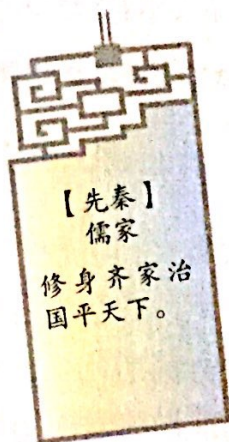 【先秦】
儒家
修身齐家治
国平天下。